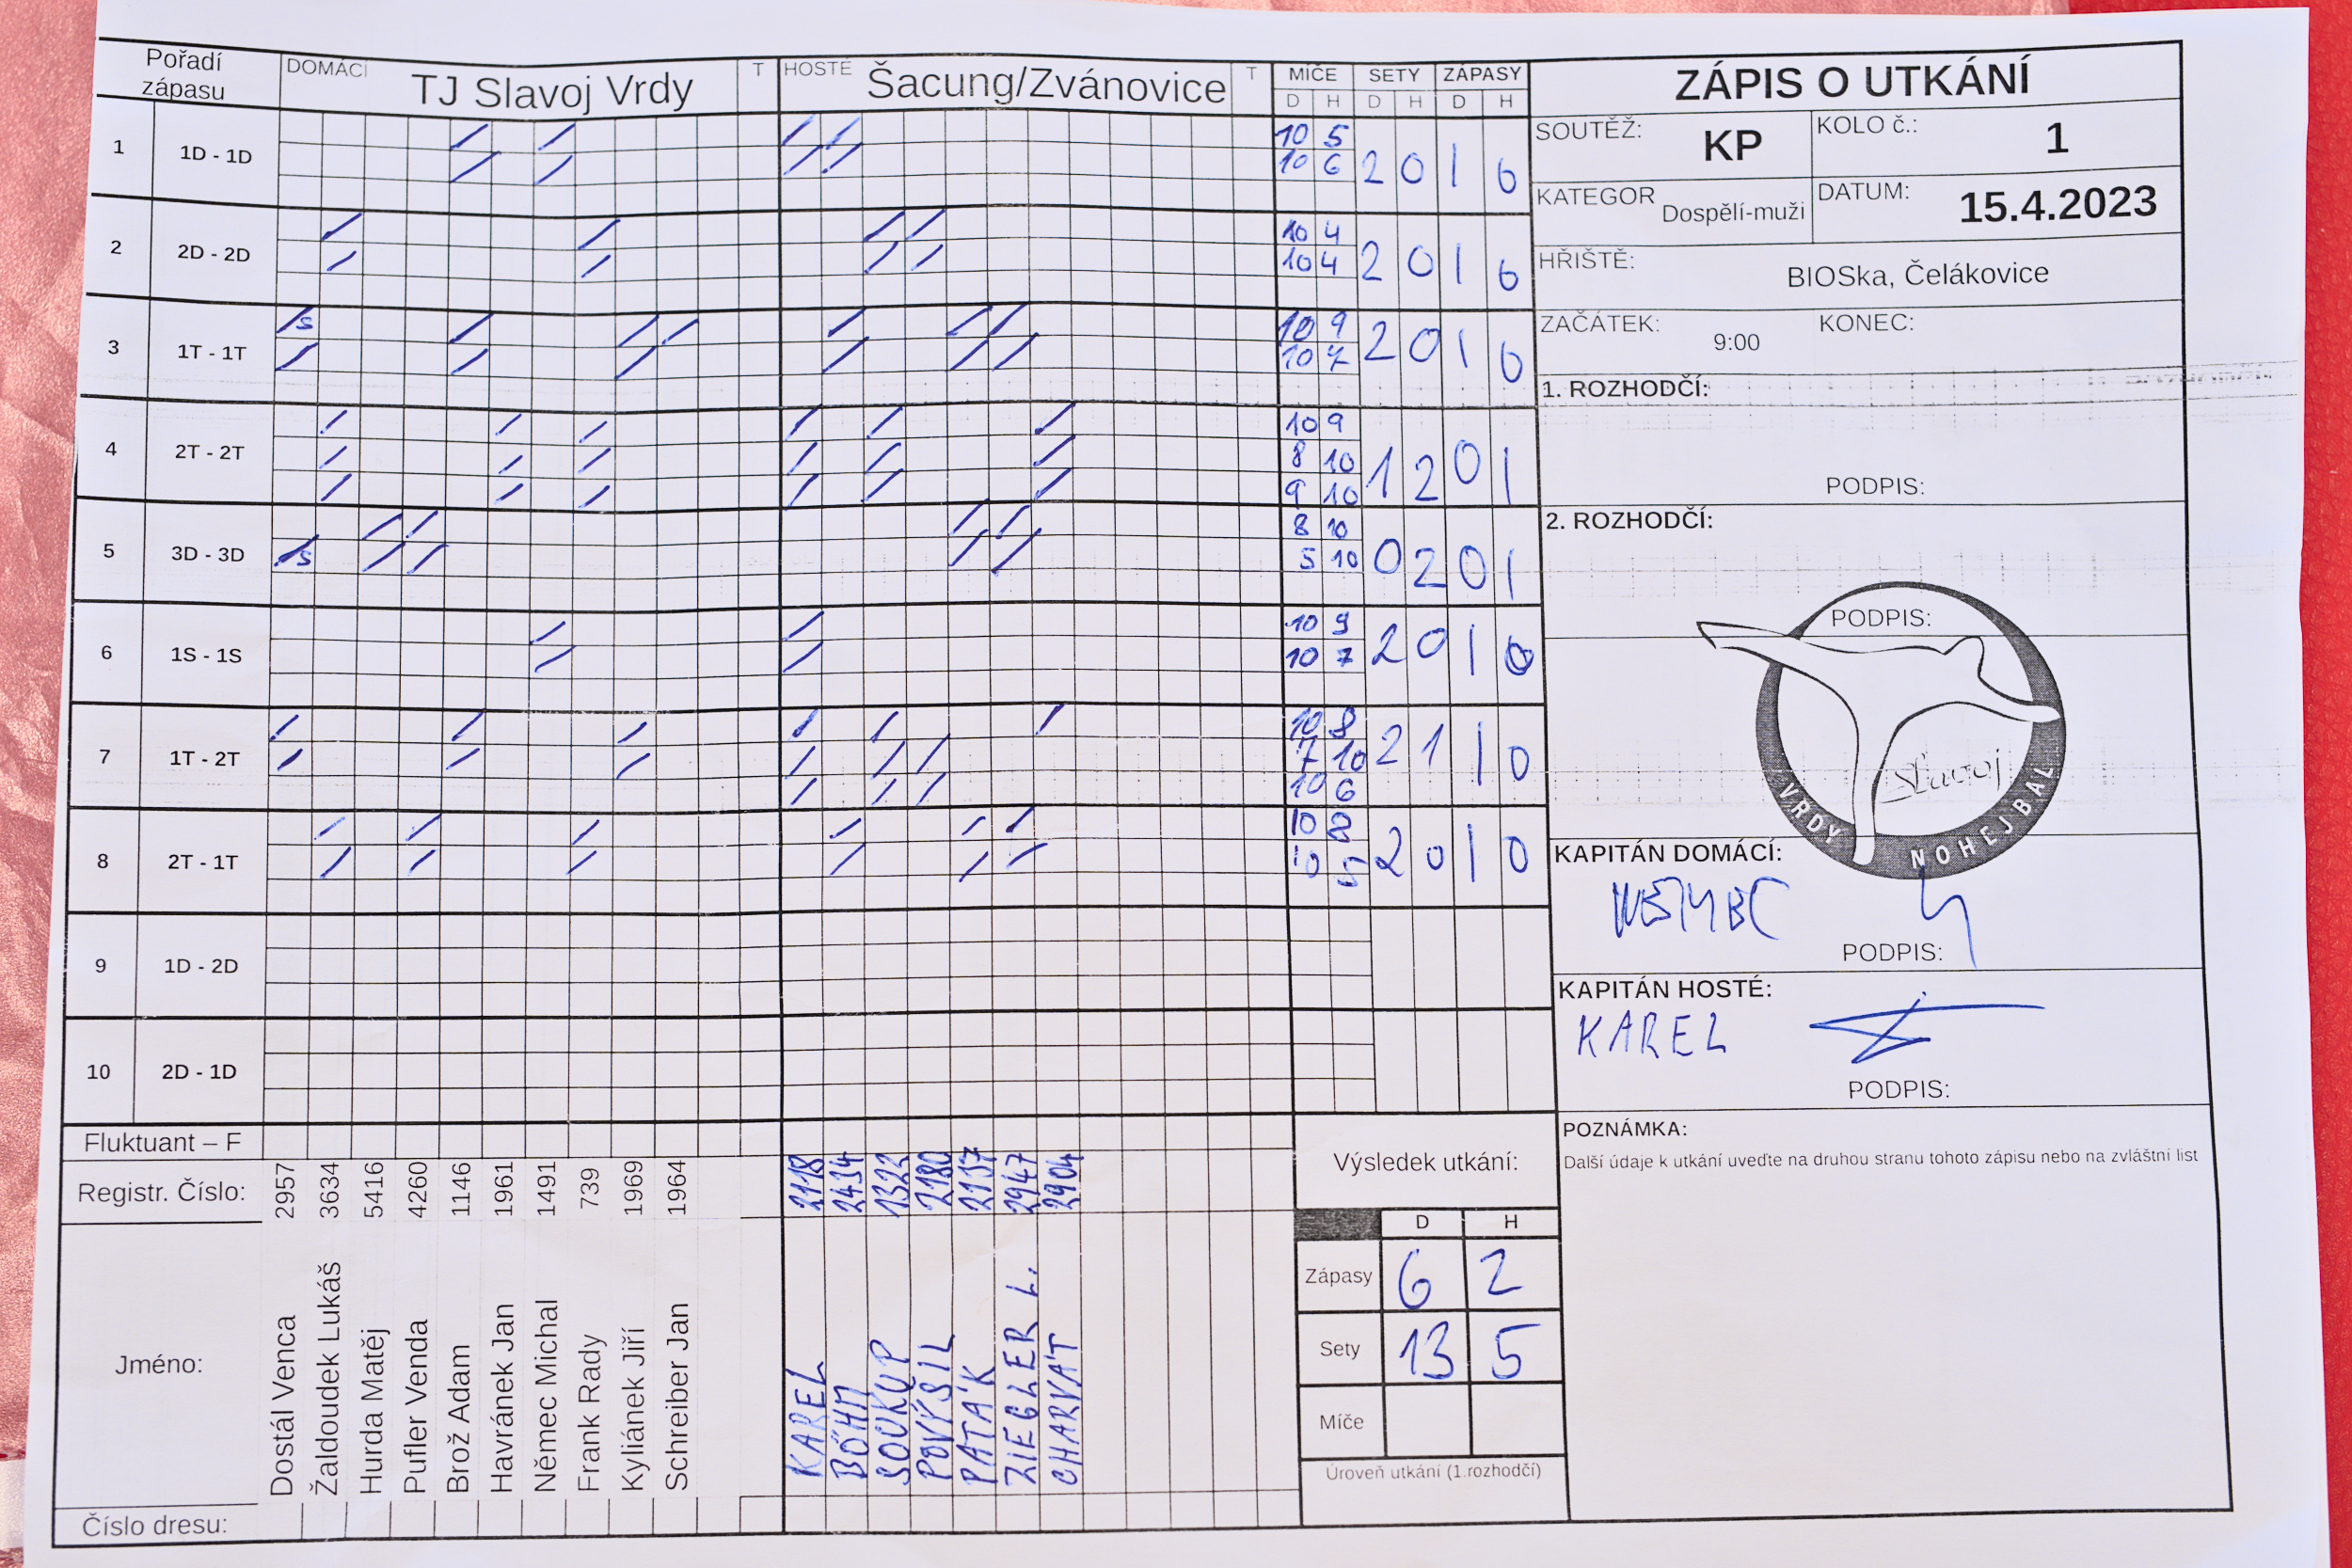 Pořadí zápasu DOMÁCÍ TJ Slavoj Vrdy T HOSTÉ Šacung/Zvánovice T MÍČE SETY ZÁPASY
D H D H D H
1 1D - 1D 10 5 2 0 1 0
10 6
2 2D - 2D 10 4 2 0 1 0
10 4
3 1T - 1T S 10 9 2 0 1 0
10 7
4 2T - 2T 10 9 1 2 0 1
8 10
9 10
5 3D - 3D S 8 10 0 2 0 1
5 10
6 1S - 1S 10 9 2 0 1 0
10 7
7 1T - 2T 10 8 2 1 1 0
7 10
10 6
8 2T - 1T 10 8 2 0 1 0
10 5
9 1D - 2D
10 2D - 1D
Fluktuant – F
Registr. Číslo: 2957 3634 5416 4260 1146 1961 1491 739 1969 1964 2118 2434 1322 2180 2137 2947 2904
Jméno: Dostál Venca Žaldoudek Lukáš Hurda Matěj Pufler Venda Brož Adam Havránek Jan Němec Michal Frank Rady Kyliánek Jiří Schreiber Jan KAREL BÖHM SOUKUP POVÝŠIL PATÁK ZIEGLER L. CHARVÁT
Číslo dresu:
Výsledek utkání:
D H
Zápasy 6 2
Sety 13 5
Míče
Úroveň utkání (1.rozhodčí)
ZÁPIS O UTKÁNÍ
SOUTĚŽ: KP KOLO č.: 1
KATEGOR Dospělí-muži DATUM: 15.4.2023
HŘIŠTĚ: BIOSka, Čelákovice
ZAČÁTEK: 9:00 KONEC:
1. ROZHODČÍ:
PODPIS:
2. ROZHODČÍ:
PODPIS:
Slavoj
VRDY NOHEJBAL
KAPITÁN DOMÁCÍ:
NĚMEC
PODPIS:
KAPITÁN HOSTÉ:
KAREL
PODPIS:
POZNÁMKA:
Další údaje k utkání uveďte na druhou stranu tohoto zápisu nebo na zvláštní list